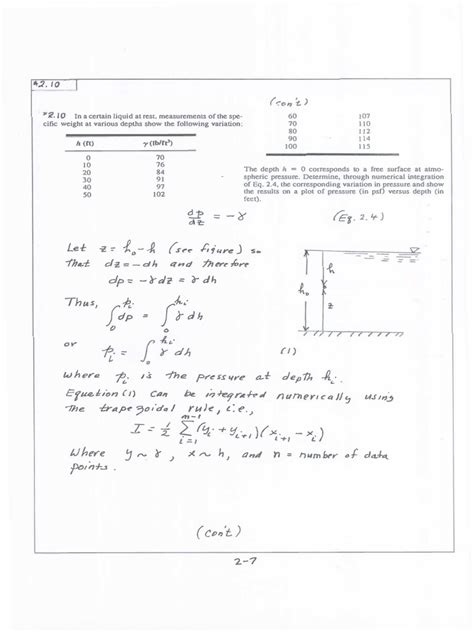 *2.10
*2.10 In a certain liquid at rest, measurements of the spe-
cific weight at various depths show the following variation:
h (ft) γ (lb/ft³)
0 70
10 76
20 84
30 91
40 97
50 102
(con't)
60 107
70 110
80 112
90 114
100 115
The depth h = 0 corresponds to a free surface at atmo-
spheric pressure. Determine, through numerical integration
of Eq. 2.4, the corresponding variation in pressure and show
the results on a plot of pressure (in psf) versus depth (in
feet).
dp/dz = -γ (Eq. 2.4)
Let z = h₀ - h (see figure) so
that dz = -dh and therefore
dp = -γdz = γdh
Thus,
∫₀^{pᵢ} dp = ∫₀^{hᵢ} γ dh
or
pᵢ = ∫₀^{hᵢ} γ dh (1)
h
h₀
z
where pᵢ is the pressure at depth hᵢ.
Equation (1) can be integrated numerically using
the trapezoidal rule, i.e.,
I = ½ Σ_{i=1}^{n-1} (yᵢ + yᵢ₊₁)(xᵢ₊₁ - xᵢ)
where y ~ γ, x ~ h, and n = number of data
points.
(con't)
2-7